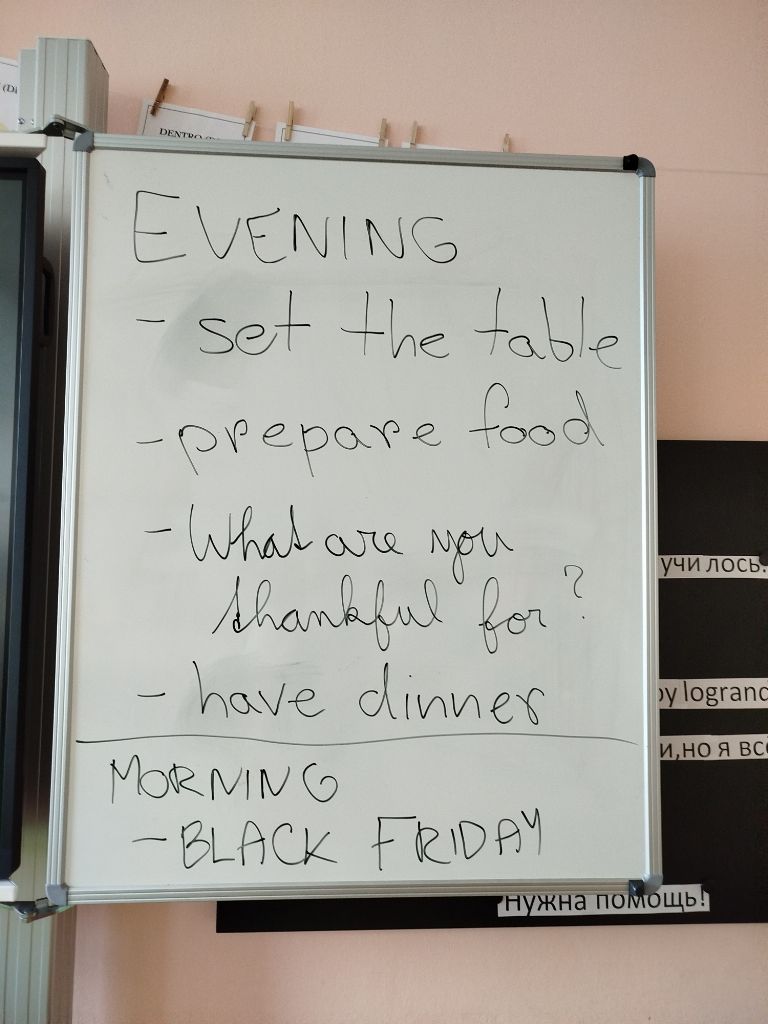 DENTRO
EVENING
- set the table
- prepare food
- What are you
thankful for?
- have dinner
MORNING
- BLACK FRIDAY
учи лось.
logrand
и,но я всё
Нужна помощь!